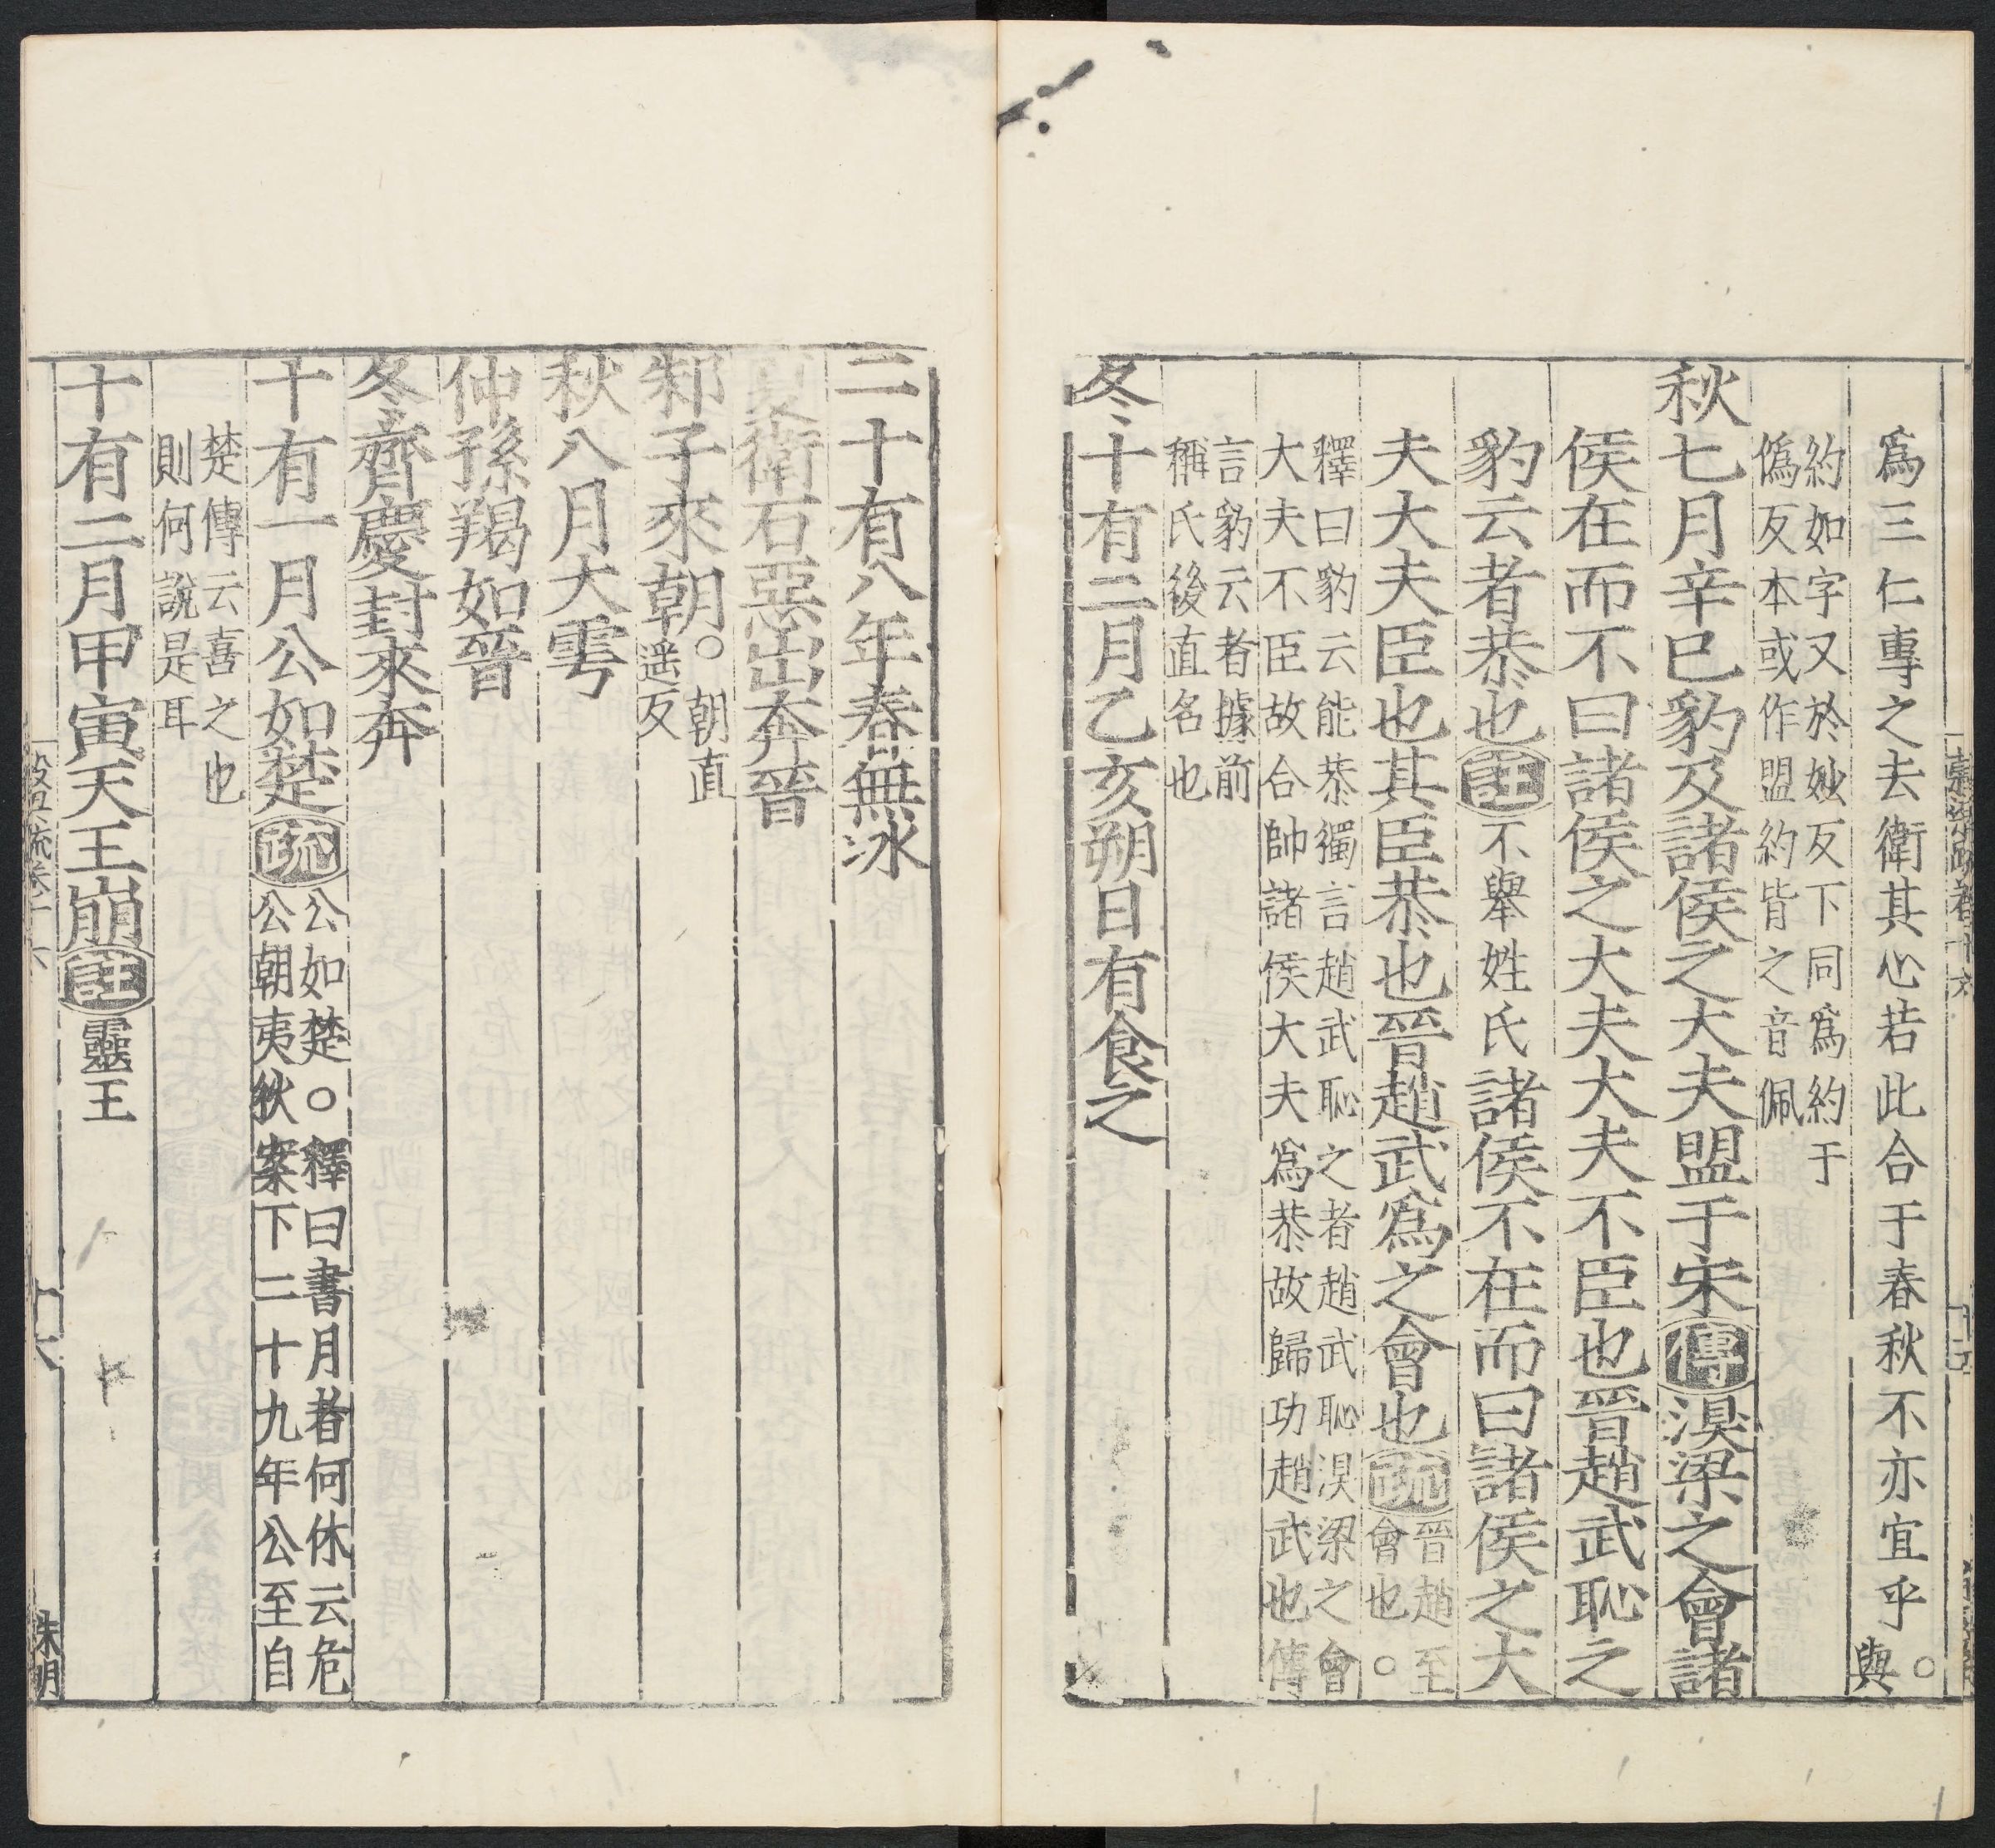 爲三仁專之去衛其心若此合于春秋不亦宜乎○與
約如字又於妙反下同爲約于
僞反本或作盟約皆之音佩
秋七月辛巳豹及諸侯之大夫盟于宋傳湨梁之會諸
侯在而不曰諸侯之大夫大夫不臣也晉趙武恥之
豹云者恭也註不舉姓氏諸侯不在而曰諸侯之大
夫大夫臣也其臣恭也晉趙武爲之會也疏晉趙至
會也○
釋曰豹云能恭獨言趙武恥之者趙武恥湨梁之會
大夫不臣故合帥諸侯大夫爲恭故歸功趙武也傳
言豹云者據前
稱氏後直名也
冬十有二月乙亥朔日有食之
二十有八年春無冰
夏衛石惡出奔晉
邾子來朝○朝直
遥反
秋八月大雩
仲孫羯如晉
冬齊慶封來奔
十有一月公如楚疏公如楚○釋曰書月者何休云危
公朝夷狄案下二十九年公至自
楚傳云喜之也
則何說是耳
十有二月甲寅天王崩註靈王
十六
朱明